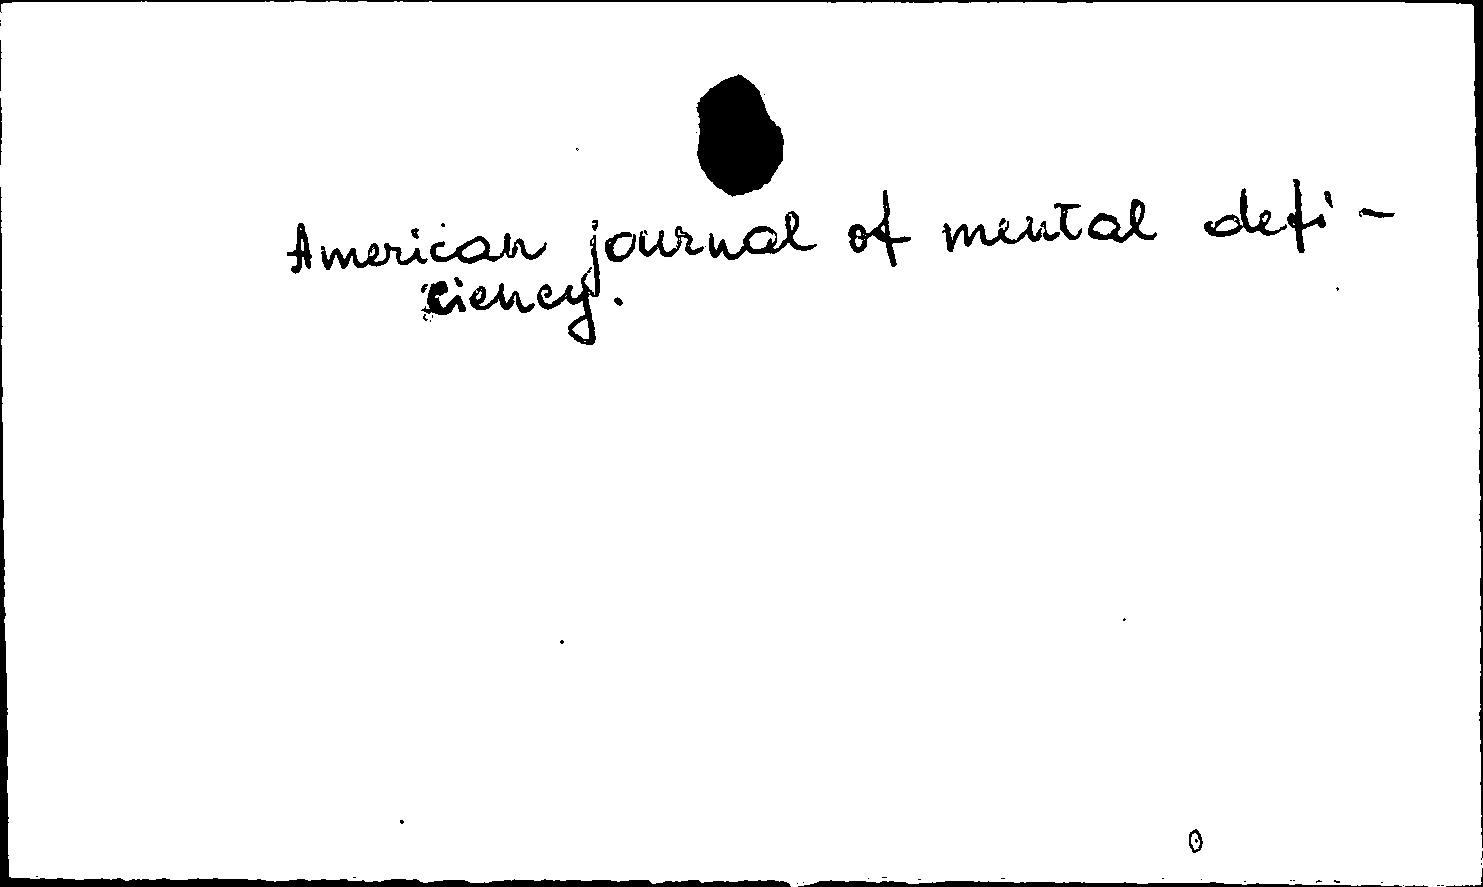 American journal of mental defi-
ciency.